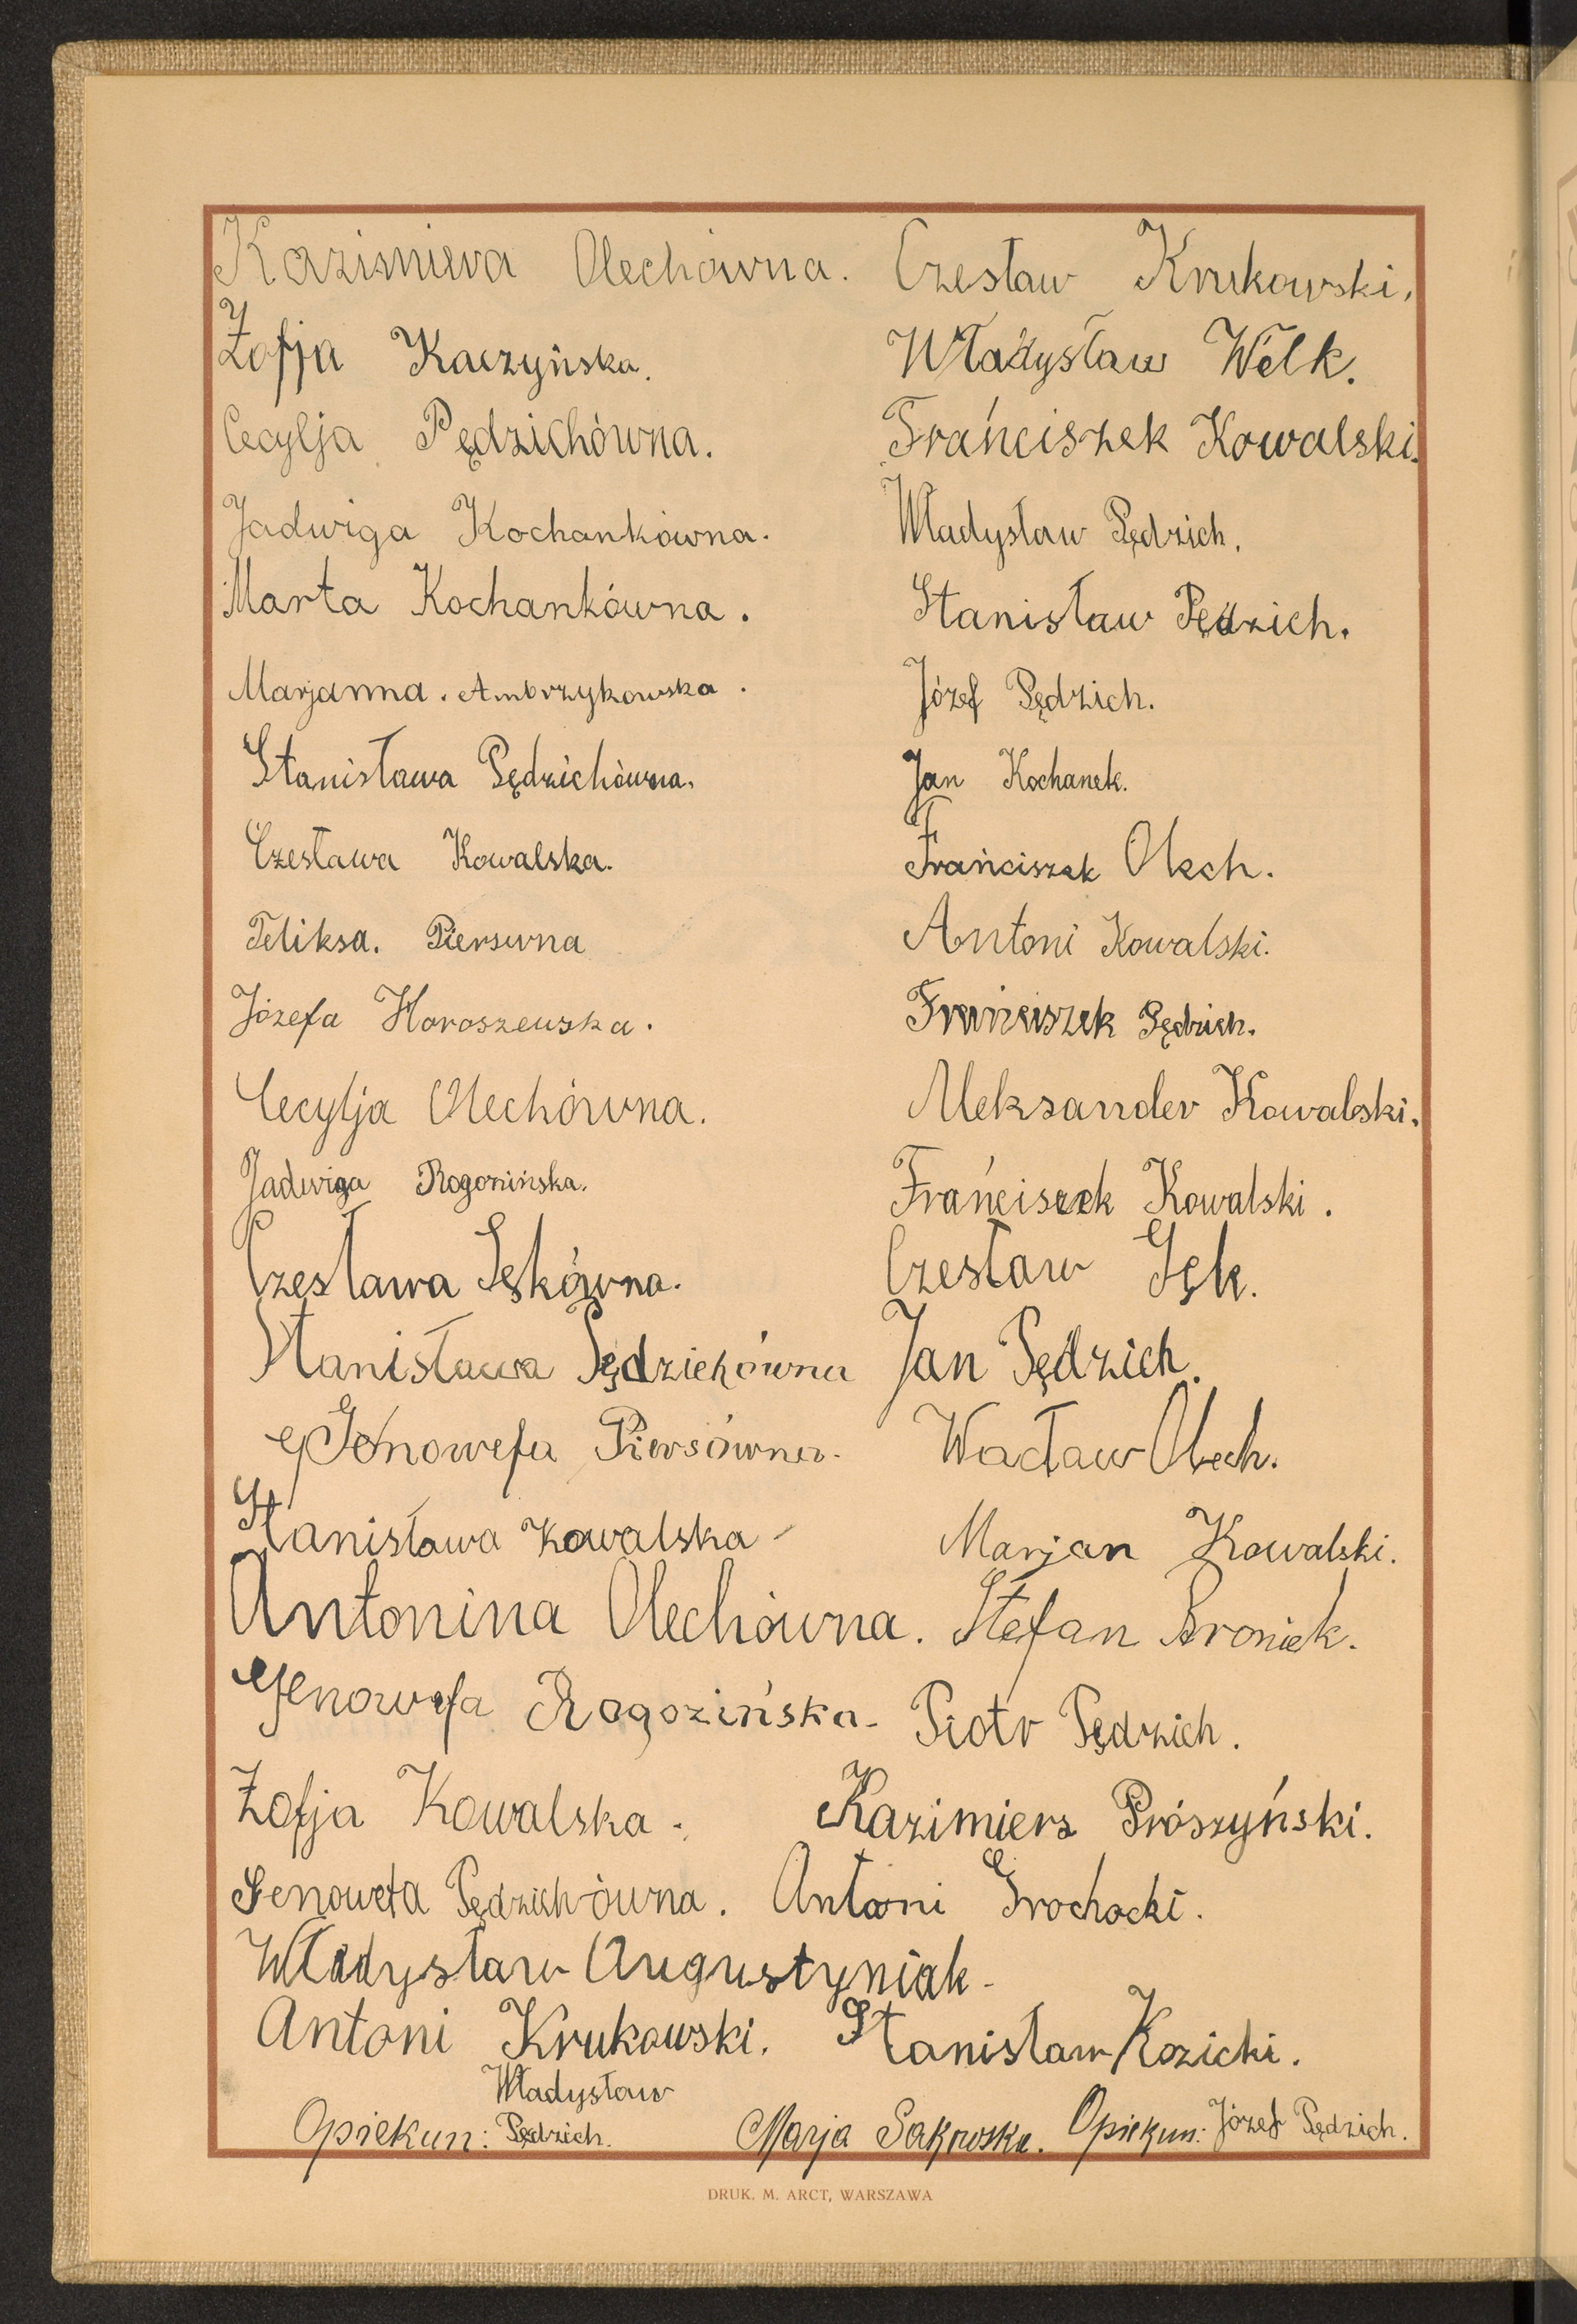 Kazimiera Olechówna. Czesław Krukowski.
Zofja Kaczyńska. Władysław Welk.
Cecylja Pędzichówna. Frańciszek Kowalski.
Jadwiga Kochankówna. Władysław Pędzich.
Marta Kochankówna. Stanisław Pędzich.
Marjanna. Ambrzykowska. Józef Pędzich.
Stanisława Pędzichówna. Jan Kochanek.
Czesława Kowalska. Frańciszek Olech.
Feliksa. Piersówna Antoni Kowalski.
Józefa Horoszewska. Frańciszek Pędzich.
Cecylja Olechówna. Aleksander Kowalski.
Jadwiga Rogozińska. Frańciszek Kowalski.
Czesława Sękówna. Czesław Sęk.
Stanisława Pędzichówna Jan Pędzich.
Genowefa Piersówna. Wacław Olech.
Stanisława Kowalska - Marjan Kowalski.
Antonina Olechówna. Stefan Broniek.
Genowefa Rogozińska - Piotr Pędzich.
Zofja Kowalska. Kazimierz Prószyński.
Genowefa Pędzichówna. Antoni Grochocki.
Władysław Augustyniak -
Antoni Krukowski. Stanisław Kozicki.
Opiekun: Władysław Pędzich. Marja Sakowska. Opiekun: Józef Pędzich.
DRUK. M. ARCT, WARSZAWA